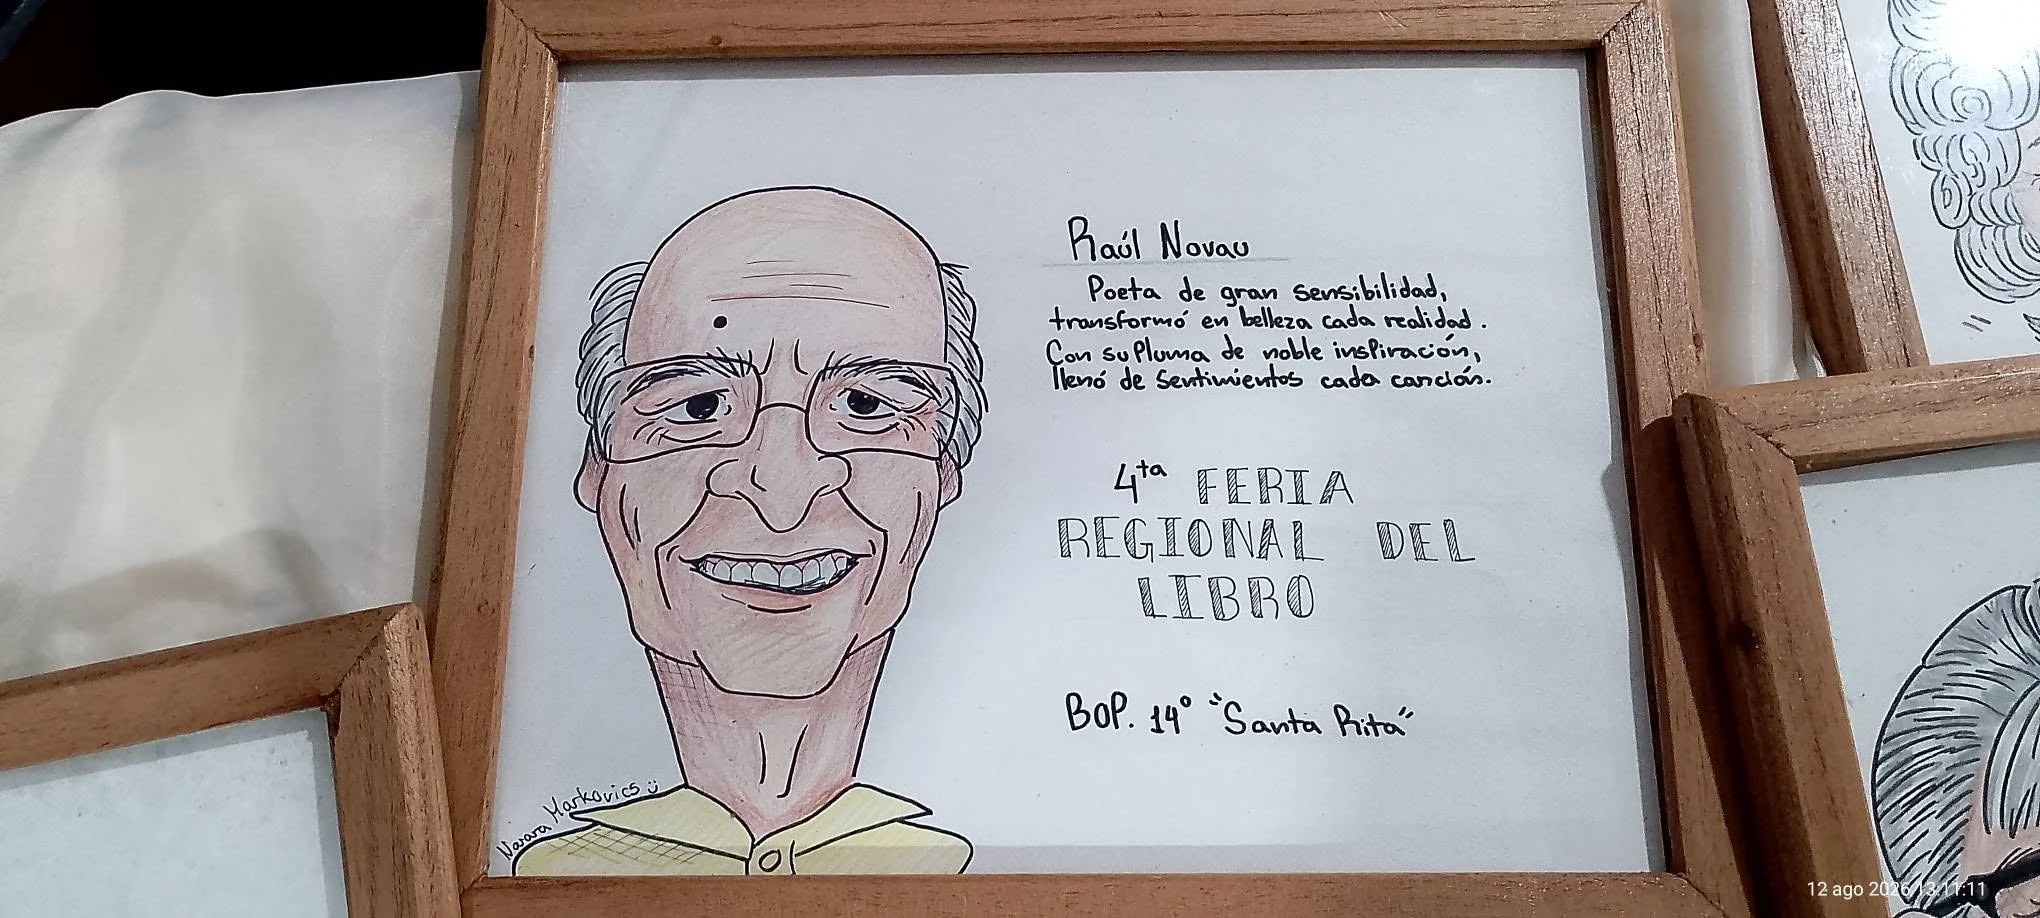 Raúl Novau
Poeta de gran sensibilidad,
transformó en belleza cada realidad.
Con su Pluma de noble inspiración,
llenó de Sentimientos cada canción.
4ta FERIA
REGIONAL DEL
LIBRO
BOP. 14° "Santa Rita"
Naiara Markovics
12 ago 2026 13:11:11